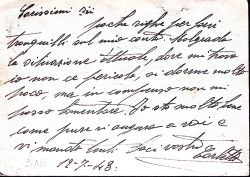 Carissimi zii
poche righe per farvi
tranquilli sul mio conto. Malgrado
la situazione attuale, dove mi trovo
io non c'è pericolo, si dorme molto
poco, ma in compenso non mi
posso lamentare. Io sto molto bene
come pure mi auguro a voi e
vi mando tanti baci vostro
12-7-43.